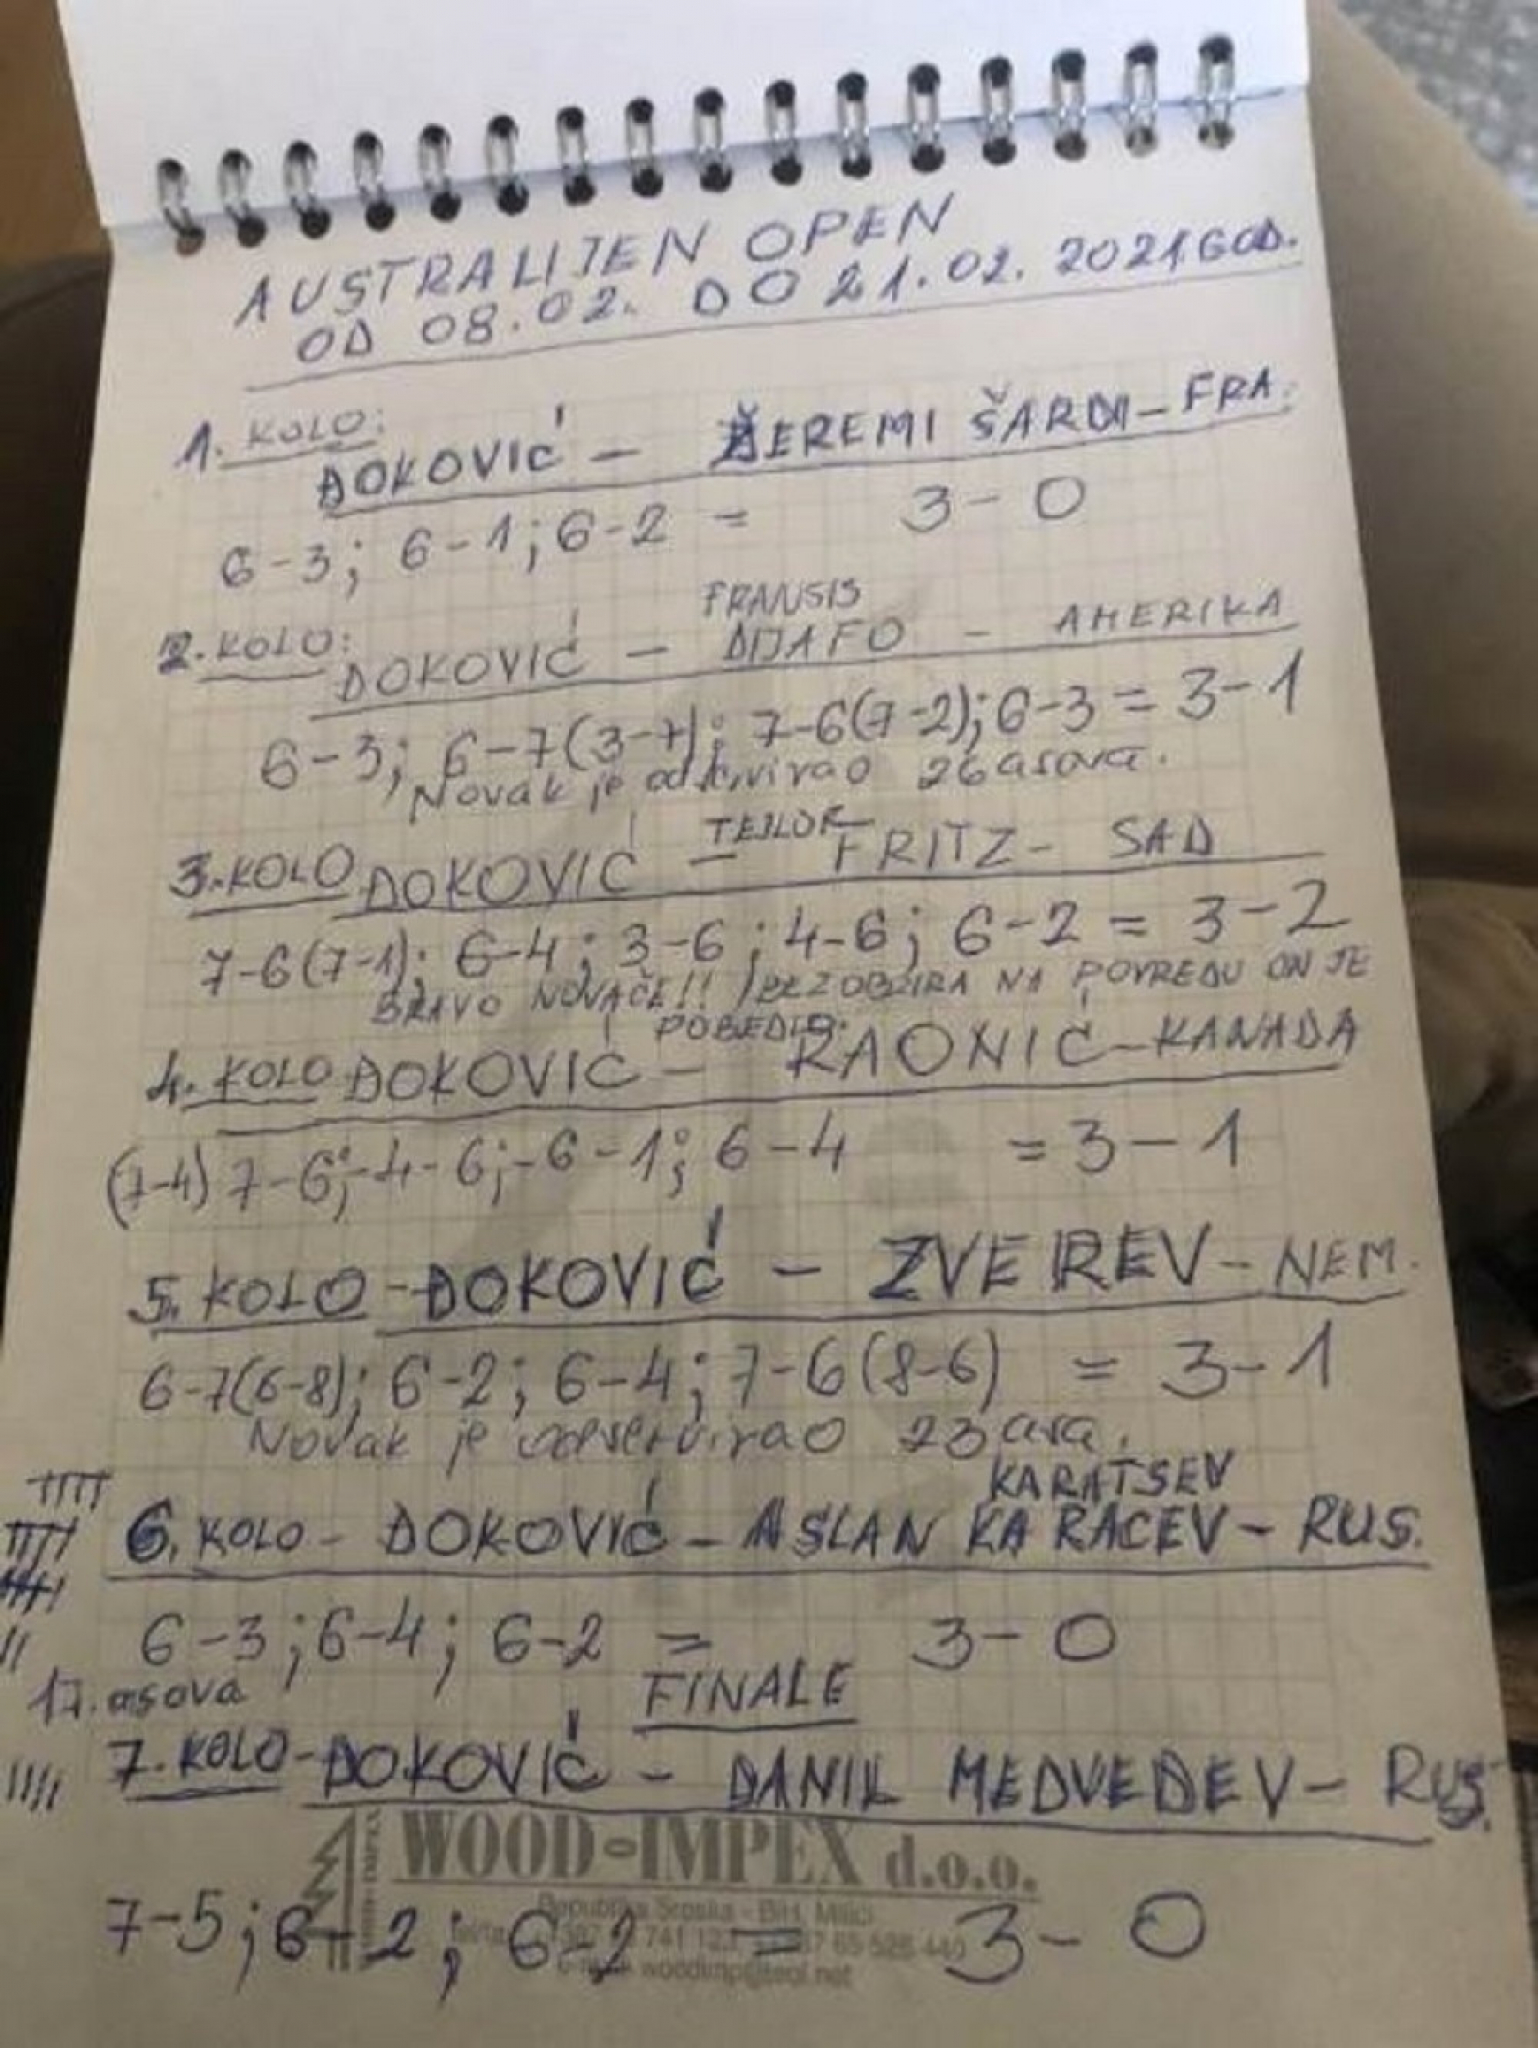 AUSTRALIJEN OPEN
OD 08.02. DO 21.02.2021 GOD.
1. KOLO:
ĐOKOVIĆ - ŽEREMI ŠARDI - FRA.
6-3; 6-1; 6-2 = 3-0
FRANSIS
2. KOLO: ĐOKOVIĆ - DIJAFO - AMERIKA
6-3; 6-7(3-7); 7-6(7-2); 6-3 = 3-1
Novak je odservirao 26 asova.
TEJLOR
3. KOLO ĐOKOVIĆ - FRITZ - SAD
7-6(7-1); 6-4; 3-6; 4-6; 6-2 = 3-2
BRAVO NOVAČE!! BEZ OBZIRA NA POVREDU ON JE
POBEDIO.
4. KOLO ĐOKOVIĆ - RAONIĆ - KANADA
(7-4) 7-6; 4-6; 6-1; 6-4 = 3-1
5. KOLO - ĐOKOVIĆ - ZVEREV - NEM.
6-7(6-8); 6-2; 6-4; 7-6(8-6) = 3-1
Novak je odservirao 23 asa.
KARATSEV
6. KOLO - ĐOKOVIĆ - ASLAN KARACEV - RUS.
6-3; 6-4; 6-2 = 3-0
17. asova
FINALE
7. KOLO - ĐOKOVIĆ - DANIL MEDVEDEV - RUS.
WOOD-IMPEX d.o.o.
Republika Srpska - BiH, Milići
7-5; 6-2; 6-2 = 3-0